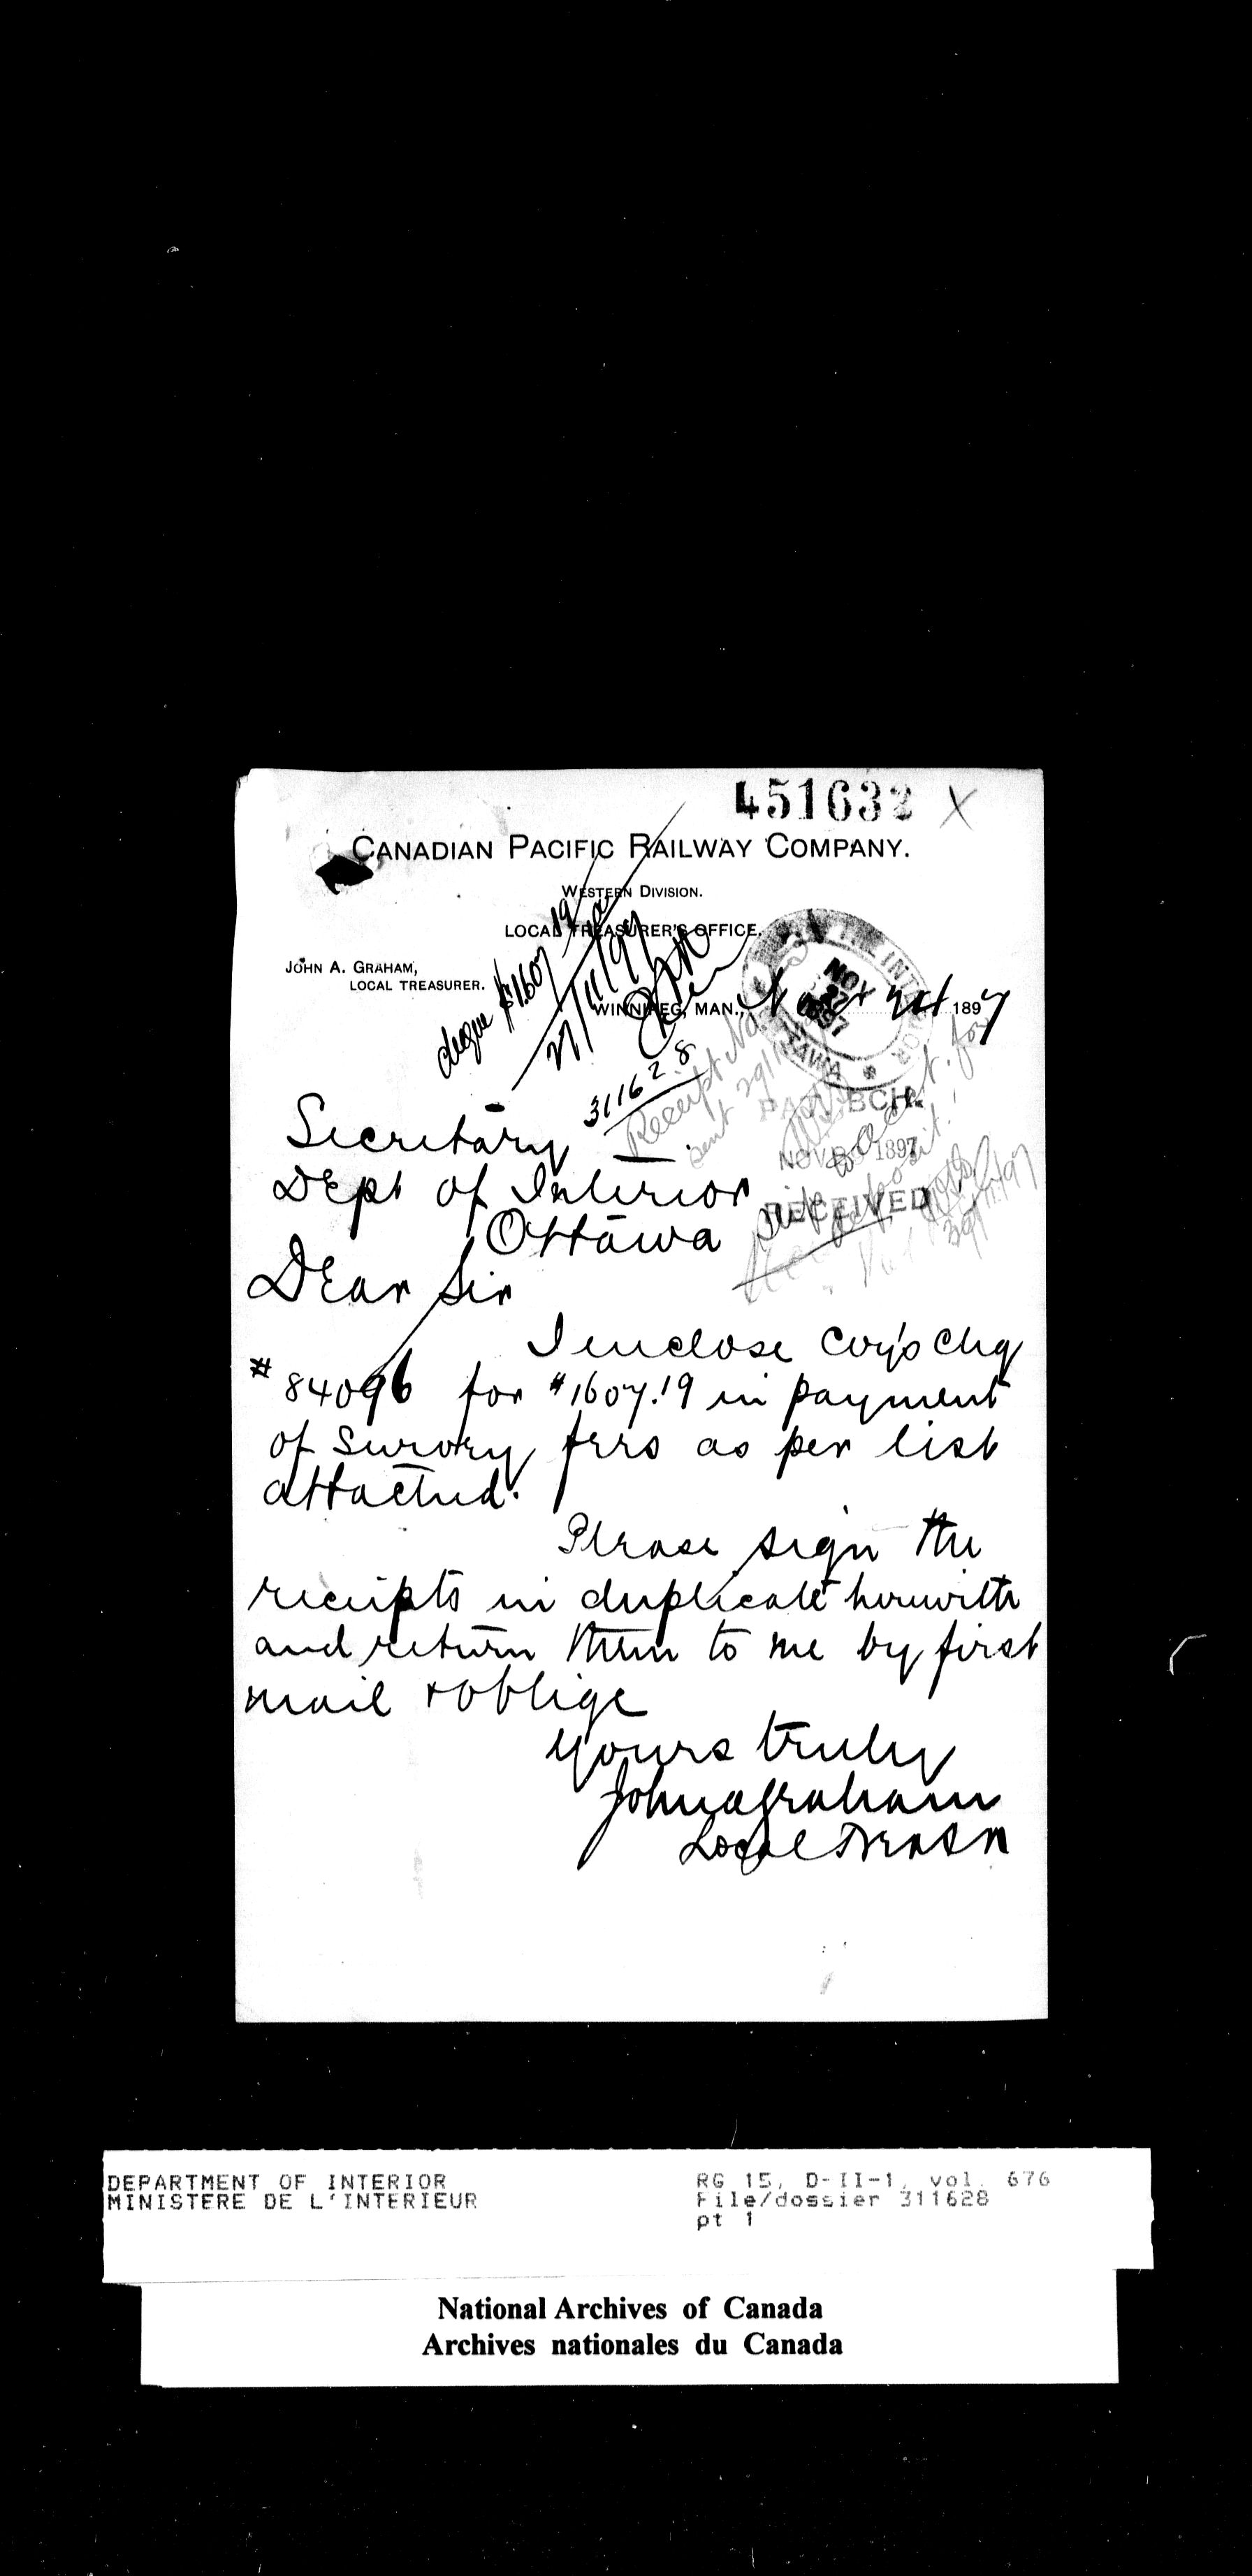 451632 X
CANADIAN PACIFIC RAILWAY COMPANY.
WESTERN DIVISION.
LOCAL TREASURER'S OFFICE.
JOHN A. GRAHAM,
LOCAL TREASURER.
cheque $1607.19
27/11/97
WINNIPEG, MAN., Nov 24 1897
NOV 27 1897
311628
Receipt No.
sent 29/11
PAT. BCH.
NOV 1897
RECEIVED
29/11/97
Secretary
Dept of Interior
Ottawa
Dear Sir
I enclose Coy's Chq
#84096 for $1607.19 in payment
of Survey fees as per list
attached.
Please sign the
receipts in duplicate herewith
and return them to me by first
mail & oblige
Yours truly
John A Graham
Local Treasr
DEPARTMENT OF INTERIOR
MINISTERE DE L'INTERIEUR
RG 15, D-II-1, vol. 676
File/dossier 311628
pt 1
National Archives of Canada
Archives nationales du Canada